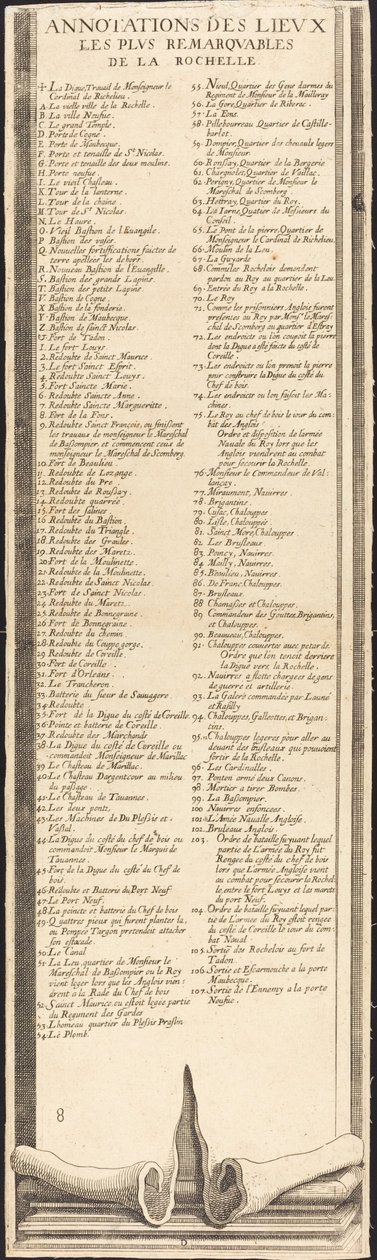 ANNOTATIONS DES LIEVX
LES PLVS REMARQVABLES
DE LA ROCHELLE
La Digue, Travail de Monseigneur le
Cardinal de Richelieu.
A. La vielle ville de la Rochelle.
B. La ville Neufue.
C. Le grand Temple.
D. Porte de Cogne.
E. Porte de Maubecque.
F. Porte et tenaille de St Nicolas.
G. Porte et tenaille des deux moulins.
H. Porte neufue
I. Le vieil Chasteau.
K. Tour de la lanterne.
L. Tour de la chaine.
M. Tour de St Nicolas.
N. Le Haure.
O. Vieil Bastion de l'Euangile.
P. Bastion des vases.
Q. Nouuelles fortiffications faictes de
terre apellées les dehors.
R. Nouueau Bastion de l'Euangille.
S. Bastion des grands Lapins.
T. Bastion des petits Lapins
V. Bastion de Cogne.
X. Bastion de la fonderie.
Y. Bastion de Maubecque.
Z. Bastion de sainct Nicolas.
Fort de Tadon.
1. Le fort Louys.
2. Redoubte de Sainct Maurice.
3. Le fort Sainct Esprit.
4. Redoubte Sainct Louys.
5. Fort Saincte Marie.
6. Redoubte Saincte Anne.
7. Redoubte Saincte Margueritte.
8. Fort de la Fons.
9. Redoubte Sainct François, ou finissent
les trauaux de monseigneur le Mareschal
de Bassompier, et commencent ceux de
monseigneur le Mareschal de Scomberg.
10. Fort de Beaulieu
11. Redoubte de Lozange.
12. Redoubte du Pre
13. Redoubte de Roussay.
14. Redoubte quarrée.
15. Fort des salines.
16. Redoubte du Bastion.
17. Redoubte du Triangle.
18. Redoubte des Graules.
19. Redoubte des Maretz.
20. Fort de la Moulinette.
21. Redoubte de la Moulinette.
22. Redoubte de Sainct Nicolas.
23. Fort de Sainct Nicolas.
24. Redoubte du Maretz.
25. Redoubte de Bonnegraine.
26. Fort de Bonnegraine.
27. Redoubte du chemin
28. Redoubte du Couppe gorge.
29. Redoubte de Coreille.
30. Fort de Coreille.
31. Fort d'Orleans.
32. Le Trancheron
33. Batterie du sieur de Sauuagere
34. Redoubte
35. Fort de la Digue du costé de Coreille
36. Pointe et batterie de Coreille.
37. Redoubte des Marchands
38. La Digue du costé de Coreille ou
commandoit Monseigneur de Marillac
39. Le Chasteau de Marillac.
40. Le Chasteau Dargencour au milieu
du passage.
41. Le Chasteau de Tauannes.
42. Les deux pontz
43. Les Machines de Du Plessis et
Vassal.
44. La Digue du costé du chef de bois ou
commandoit Monsieur le Marquis de
Tauannes.
45. Fort de la Digue du costé du Chef de
bois.
46. Redoubte et Batterie du Port Neuf
47. Le Port Neuf.
48. La poincte et batterie du Chef de bois
49. Quattres pieux qui furent plantez la,
ou Pompée Targon pretendoit attacher
son estacade.
50. Le Canal
51. La Leu, quartier de Monsieur le
Mareschal de Bassompier ou le Roy
vient loger lors que les Anglois vien-
drent a la Rade du Chef de bois
52. Sainct Maurice, ou estoit logée partie
du Regiment des Gardes
53. Lhomeau quartier du Plessis Praslin
54. Le Plomb.
55. Nieul, Quartier des Gens darmes du
Regiment de Monsieur de la Mailleray
56. La Gore, Quartier de Riberac.
57. La Fons.
58. Pilleboureau, Quartier de Castille-
barlot.
59. Dompier, Quartier des cheuaulx legers
de Monsieur
60. Ronssay, Quartier de la Bergerie
61. Chargnolet, Quartier de Vaillac.
62. Perigny, Quartier de Monsieur le
Mareschal de Scomberg.
63. Hettray, Quartier du Roy.
64. La Iarne, Quatier de Messieurs du
Conseil.
65. Le Pont de la pierre, Quartier de
Monseigneur le Cardinal de Richelieu.
66. Moulin de la Leu.
67. La Guyarde
68. Comme les Rochelois demandent
pardon au Roy au quartier de la Leu.
69. Entrée du Roy a la Rochelle.
70. Le Roy
71. Comme les prisonniers Anglois furent
presentez au Roy par Monsr le Mares-
chal de Scomberg au quartier d'Estray
72. Les endroictz ou lon coupoit la pierre
dont la Digue a esté faicte du costé de
Coreille.
73. Les endroictz ou lon prenoit la pierre
pour construire la Digue du costé du
Chef de bois.
74. Les endroictz ou lon faisoit les Ma-
chines.
75. Le Roy au chef de bois le iour du com-
bat des Anglois
Ordre et disposition de l'armée
Nauale du Roy lors que les
Anglois viendrent au combat
pour secourir la Rochelle.
76. Monsieur le Commandeur de Val-
lançay.
77. Miraumont, Nauirres.
78. Brigantins.
79. Cusac, Chalouppes
80. Lisle, Chalouppes.
81. Sainct Moré, Chalouppes
82. Les Brusleaux
83. Poincy, Nauirres.
84. Mailly, Nauirres.
85. Beaulieu, Nauirres.
86. De Franc, Chalouppes.
87. Brusleaux
88. Chamasses et Chalouppes.
89. Commandeur des Gouttes, Brigantins,
et Chalouppes.
90. Beauueau, Chalouppes.
91. Chalouppes couuertes auec petards.
Ordre que lon tenoit derriere
la Digue vers la Rochelle.
92. Nauirres a flotte chargées de gens
de guerre et artillerie.
93. La Galere commandée par Launé
et Rasilly
94. Chalouppes, Galleottes, et Brigan-
tins.
95. Chalouppes legeres pour aller au
deuant des brusleaux qui pouuoient
sortir de la Rochelle.
96. Les Cardinalles.
97. Ponton armé deux Canons.
98. Mortier a tirer Bombes.
99. La Bassompier.
100. Nauirres enfoncées.
101. L'Armée Naualle Angloise.
102. Bruleaux Anglois.
103. Ordre de bataille suyuant lequel
partie de L'armée du Roy fut
Rengée du costé du chef de bois
lors que L'armée Angloise vient
au combat pour secourir la Rochelle
le, entre le fort Louys et les marets
du port Neuf.
104. Ordre de bataille suyuant lequel par-
tie de L'armée du Roy estoit rengée
du costé de Coreille le iour du com-
bat Naual
105. Sortie des Rochelois au fort de
Tadon.
106. Sortie et Escarmouche a la porte
Maubecque.
107. Sortie de l'Ennemy a la porte
Neufue.
8
D